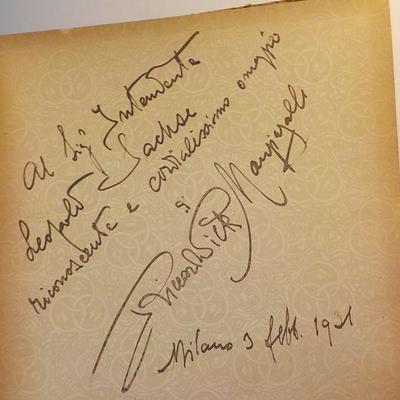 Al Sigr Intendente
Leopold Sachse
riconoscente e cordialissimo omaggio
di
Riccardo Pick Mangiagalli
Milano 3 febb. 1931